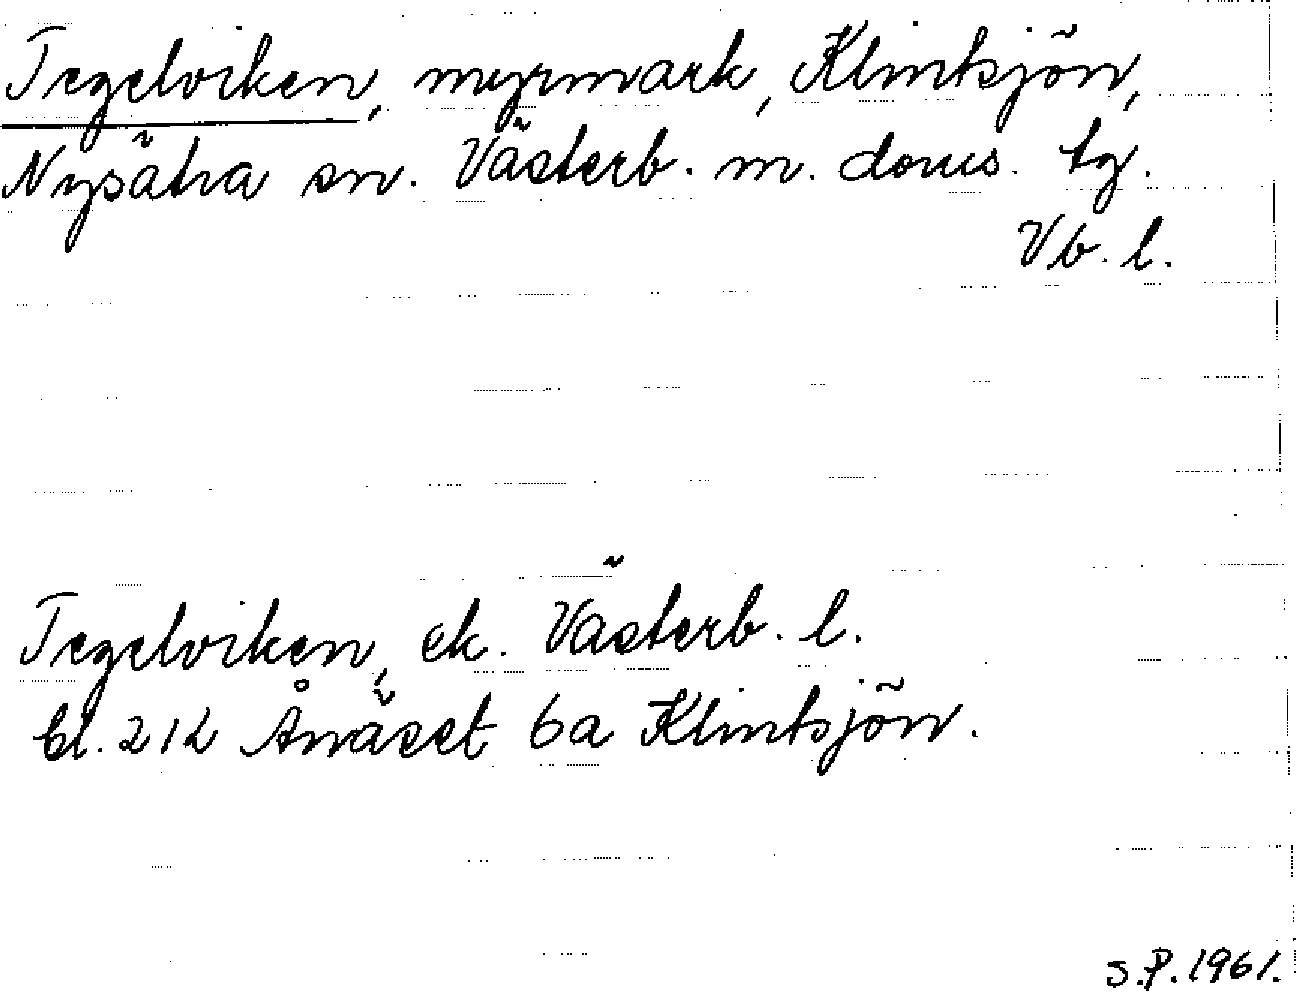 Tegelviken, myrmark, Klintsjön,
Nysätra sn. Västerb. m. doms. tg.
Vb. l.
Tegelviken, ek. Västerb. l.
bl. 212 Ånäset 6a Klintsjön.
S.P. 1961.